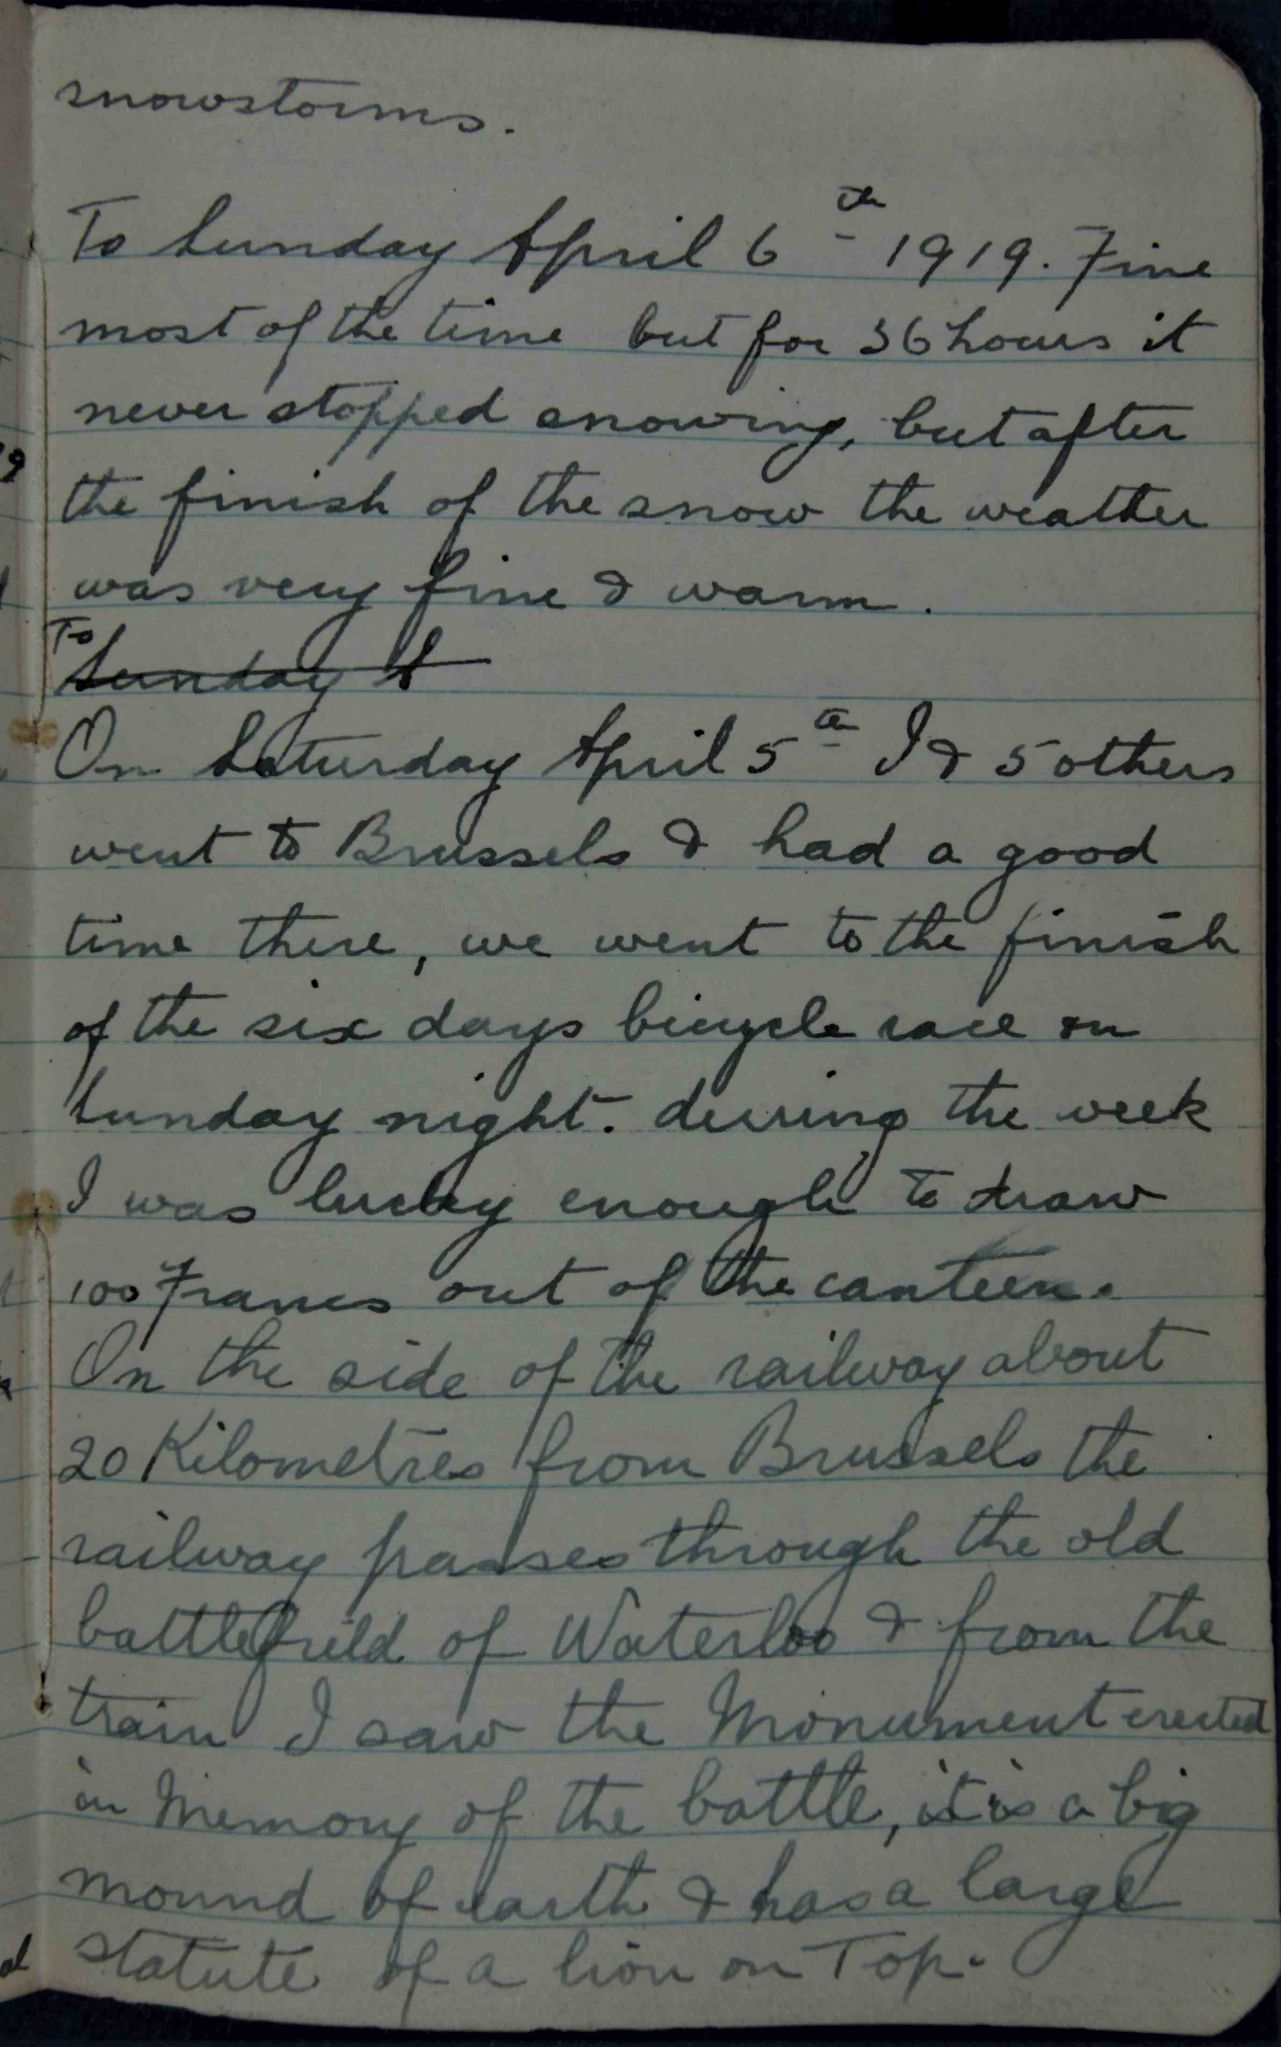 snowstorms.
To Sunday April 6th 1919. Fine
most of the time but for 36 hours it
never stopped snowing, but after
the finish of the snow the weather
was very fine & warm.
To
Sunday A
On Saturday April 5th I & 5 others
went to Brussels & had a good
time there, we went to the finish
of the six days bicycle race on
Sunday night. during the week
I was lucky enough to draw
100 Francs out of the canteen.
On the side of the railway about
20 Kilometres from Brussels the
railway passes through the old
battlefield of Waterloo & from the
train I saw the Monument erected
in Memory of the battle, it is a big
mound of earth & has a large
statute of a lion on Top.